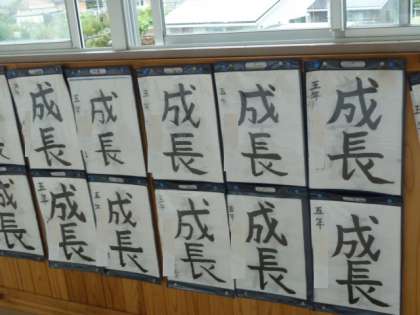 成長
五年
成長
五年
成長
五年
成長
五年
成長
成長
五年
成長
五年
成長
五年
成長
五年
成長
五年
成長